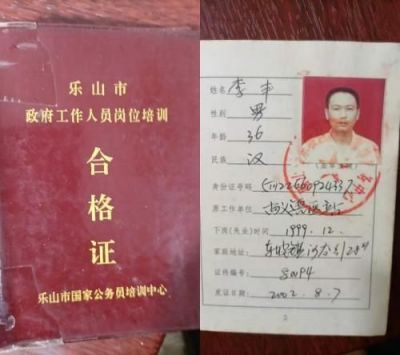 乐山市
政府工作人员岗位培训
合格证
乐山市国家公务员培训中心
姓名 李丰
性别 男
年龄 36
民族 汉
身份证号码
原工作单位
下岗(失业)时间 1999.12.
家庭地址:
证件编号: 80094
发证日期: 2002.8.7
2